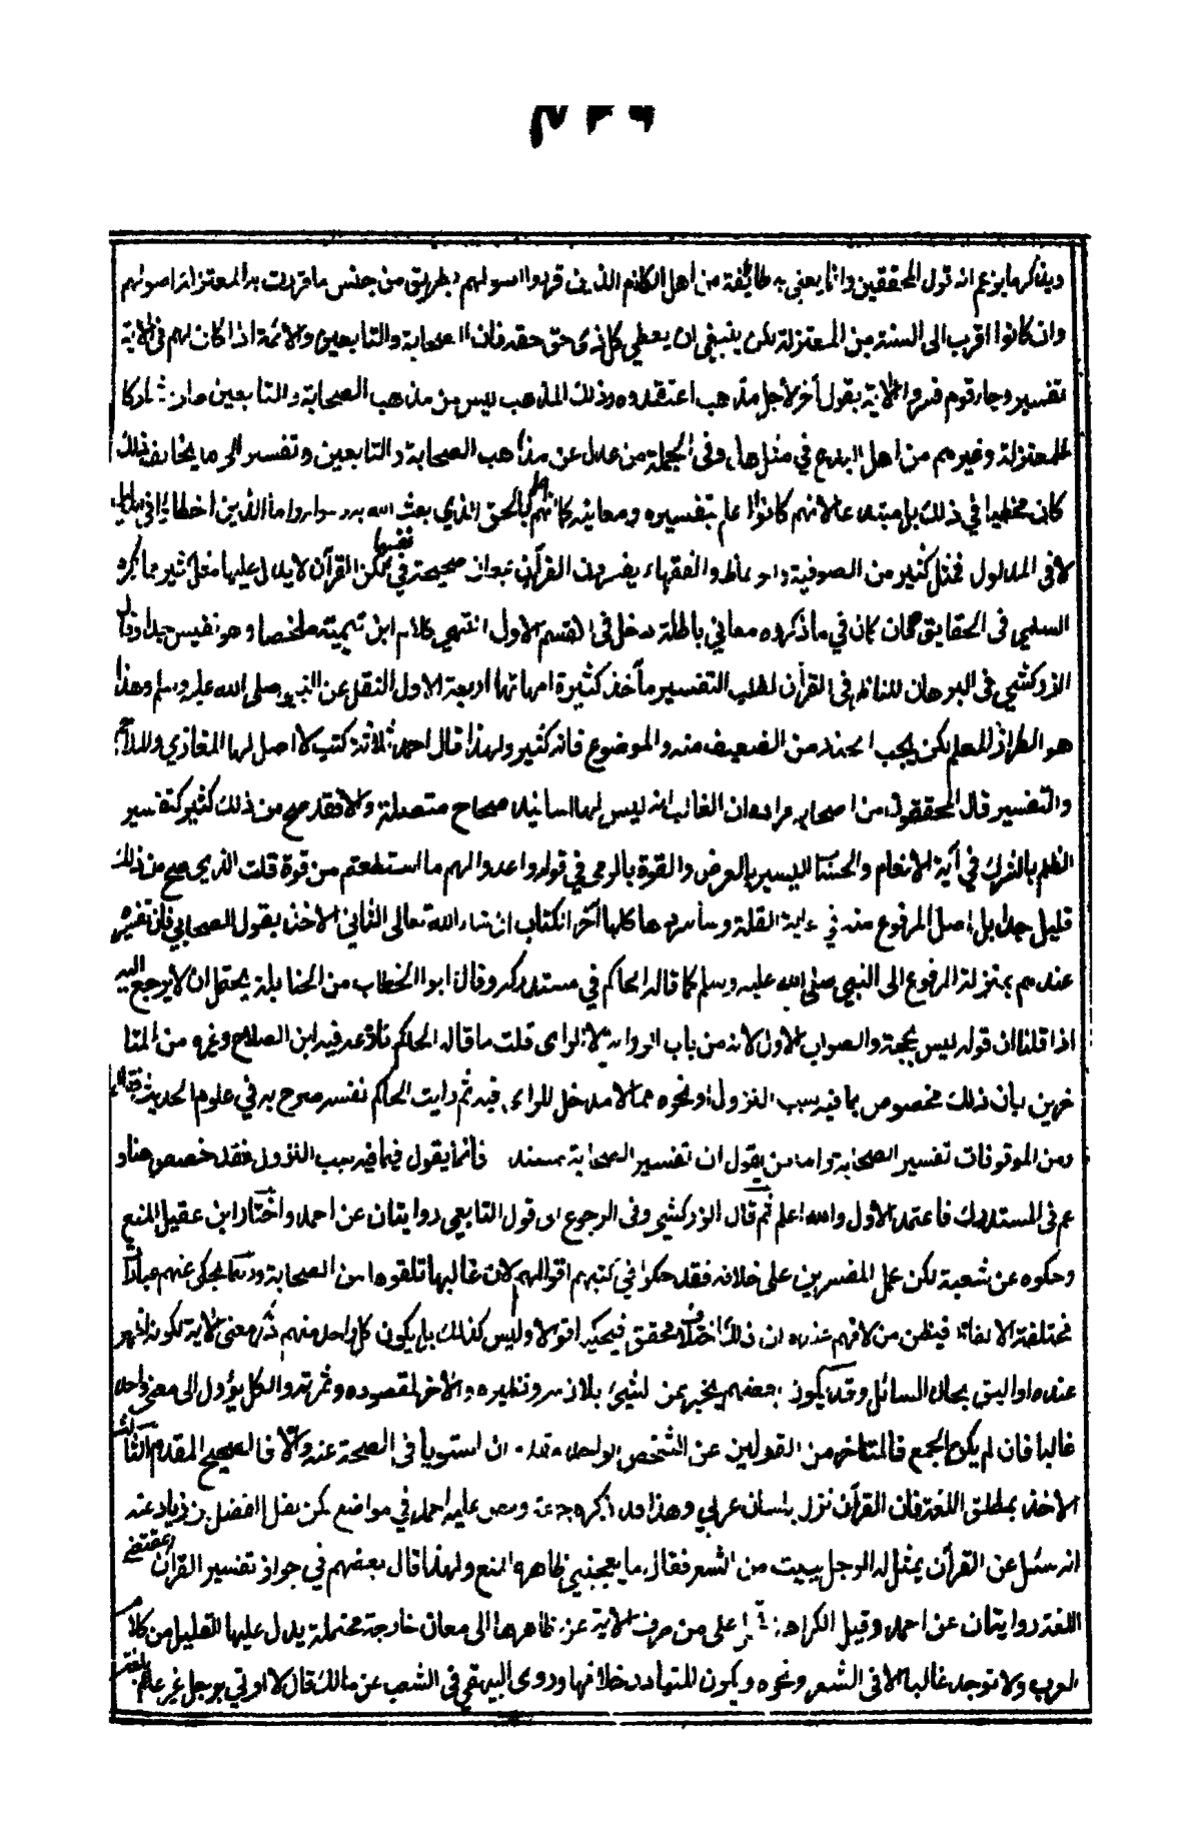 ويذكر ما يزعم انه قول المحققين وانما يعني به طائفة من اهل الكلام الذين قرروا اصولهم بطريق من جنس ما قررت به المعتزلة اصولهم
وان كانوا اقرب الى السنة من المعتزلة لكن ينبغي ان يعطي كل ذي حق حقه فان الصحابة والتابعين والائمة اذا كان لهم في الآية
تفسير وجاء قوم فسروا الآية بقول آخر لاجل مذهب اعتقدوه وذلك المذهب ليس من مذهب الصحابة والتابعين صار مشاركا
للمعتزلة وغيرهم من اهل البدع في مثل هذا وفي الجملة من عدل عن مذاهب الصحابة والتابعين وتفسيرهم الى ما يخالف ذلك
كان مخطيا في ذلك بل مبتدعا لانهم كانوا اعلم بتفسيره ومعانيه كما انهم اعلم بالحق الذي بعث الله به رسوله واما الذين اخطاوا في الدليل
لا في المدلول فمثل كثير من الصوفية والوعاظ والفقهاء يفسرون القرآن بمعان صحيحة في نفسها لكن القرآن لا يدل عليها مثل كثير مما ذكره
السلمي في الحقايق فان كان في ما ذكروه معاني باطلة دخل في القسم الاول انتهى كلام ابن تيمية ملخصا وهو نفيس جدا وقال
الزركشي في البرهان للناظر في القرآن لطلب التفسير مآخذ كثيرة امهاتها اربعة الاول النقل عن النبي صلى الله عليه وسلم وهذا
هو الطراز المعلم لكن يجب الحذر من الضعيف منه والموضوع فانه كثير ولهذا قال احمد ثلاثة كتب لا اصل لها المغازي والملاحم
والتفسير قال المحققون من اصحابه مراده ان الغالب انه ليس لها اسانيد صحاح متصلة والا فقد صح من ذلك كثير كتفسير
الظلم بالشرك في آية الانعام والحساب اليسير بالعرض والقوة بالرمي في قوله واعدوا لهم ما استطعتم من قوة قلت الذي صح من ذلك
قليل جدا بل اصل المرفوع منه في غاية القلة وسأسردها كلها آخر الكتاب ان شاء الله تعالى الثاني الاخذ بقول الصحابي فان تفسيره
عندهم بمنزلة المرفوع الى النبي صلى الله عليه وسلم كما قاله الحاكم في مستدركه وقال ابو الخطاب من الحنابلة يحتمل ان لا يرجع اليه
اذا قلنا ان قوله ليس بحجة والصواب الاول لانه من باب الرواية لا الراى قلت ما قاله الحاكم نازعه فيه ابن الصلاح وغيره من المتا
خرين بان ذلك مخصوص بما فيه سبب النزول او نحوه مما لا مدخل للراى فيه ثم رايت الحاكم نفسه صرح به في علوم الحديث فقال
ومن الموقوفات تفسير الصحابة واما من يقول ان تفسير الصحابة مسند فانما يقول فيما فيه سبب النزول فقد خصص هنا و
عم في المستدرك فاعتمد الاول والله اعلم ثم قال الزركشي وفي الرجوع الى قول التابعي روايتان عن احمد واختار ابن عقيل المنع
وحكوه عن شعبة لكن عمل المفسرين على خلافه فقد حكوا في كتبهم اقوالهم لان غالبها تلقوها من الصحابة وربما يحكى عنهم عبارات
مختلفة الالفاظ فيظن من لا فهم عنده ان ذلك اختلاف محقق فيحكيه اقوالا وليس كذلك بل يكون كل واحد منهم ذكر معنى الآية لكونه اظهر
عنده او اليق بحال السائل وقد يكون بعضهم يخبر عن الشيئ بلازمه ونظيره والاخر بمقصوده وثمرته والكل يؤول الى معنى واحد
غالبا فان لم يكن الجمع فالمتاخر من القولين عن الشخص الواحد مقدم ان استويا في الصحة عنه والا فالصحيح المقدم الثالث
الاخذ بمطلق اللغة فان القرآن نزل بلسان عربي وهذا قد ذكره جماعة ونص عليه احمد في مواضع لكن نقل الفضل بن زياد عنه
انه سئل عن القرآن يمثل له الرجل ببيت من الشعر فقال ما يعجبني ظاهره المنع ولهذا قال بعضهم في جواز تفسير القرآن بمقتضى
اللغة روايتان عن احمد وقيل الكراهة على من صرف الآية عن ظاهرها الى معان خارجة محتملة يدل عليها القليل من كلام
العرب ولا توجد غالبا الا في الشعر ونحوه ويكون المتبادر خلافها وروى البيهقي في الشعب عن مالك قال لا اوتي برجل غير عالم بلغة